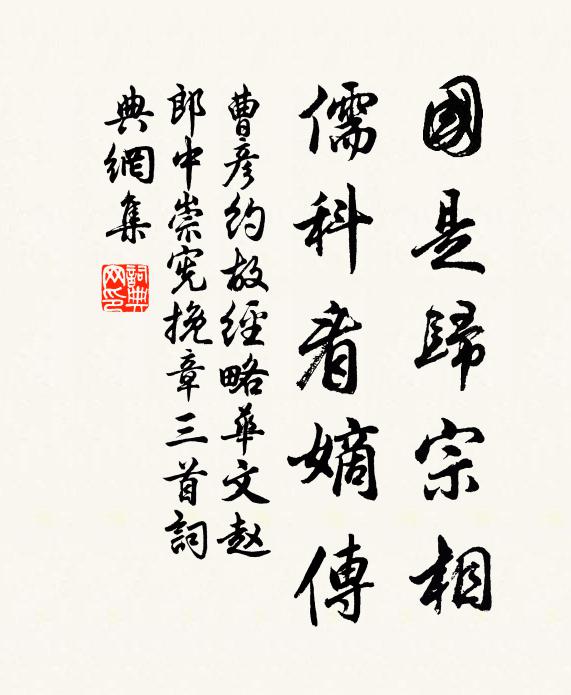 國是歸宗相
儒科看嫡傳
曹彦約故經略華文赵
郎中崇宪挽章三首詞
典網集
詞典
网印